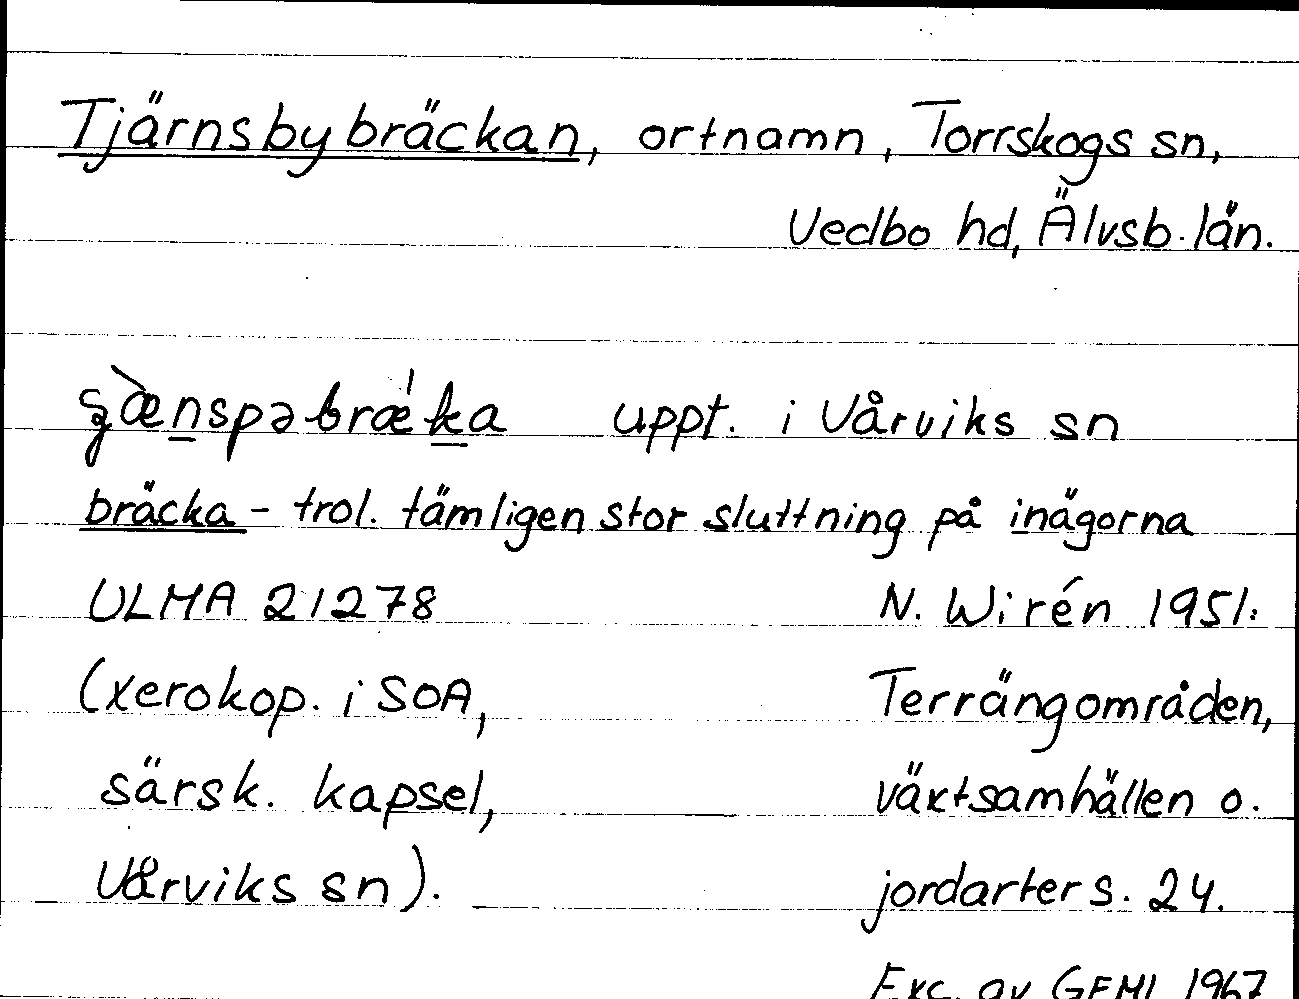 Tjärnsbybräckan, ortnamn, Torrskogs sn,
Vedbo hd, Älvsb. län.
uppt. i Vårviks sn
bräcka - trol. tämligen stor sluttning på inägorna
ULMA 21278 N. Wirén 1951:
(xerokop. i SOA, Terrängområden,
särsk. kapsel, växtsamhällen o.
Vårviks sn). jordarter s. 24.
Exc. av GEML 1967